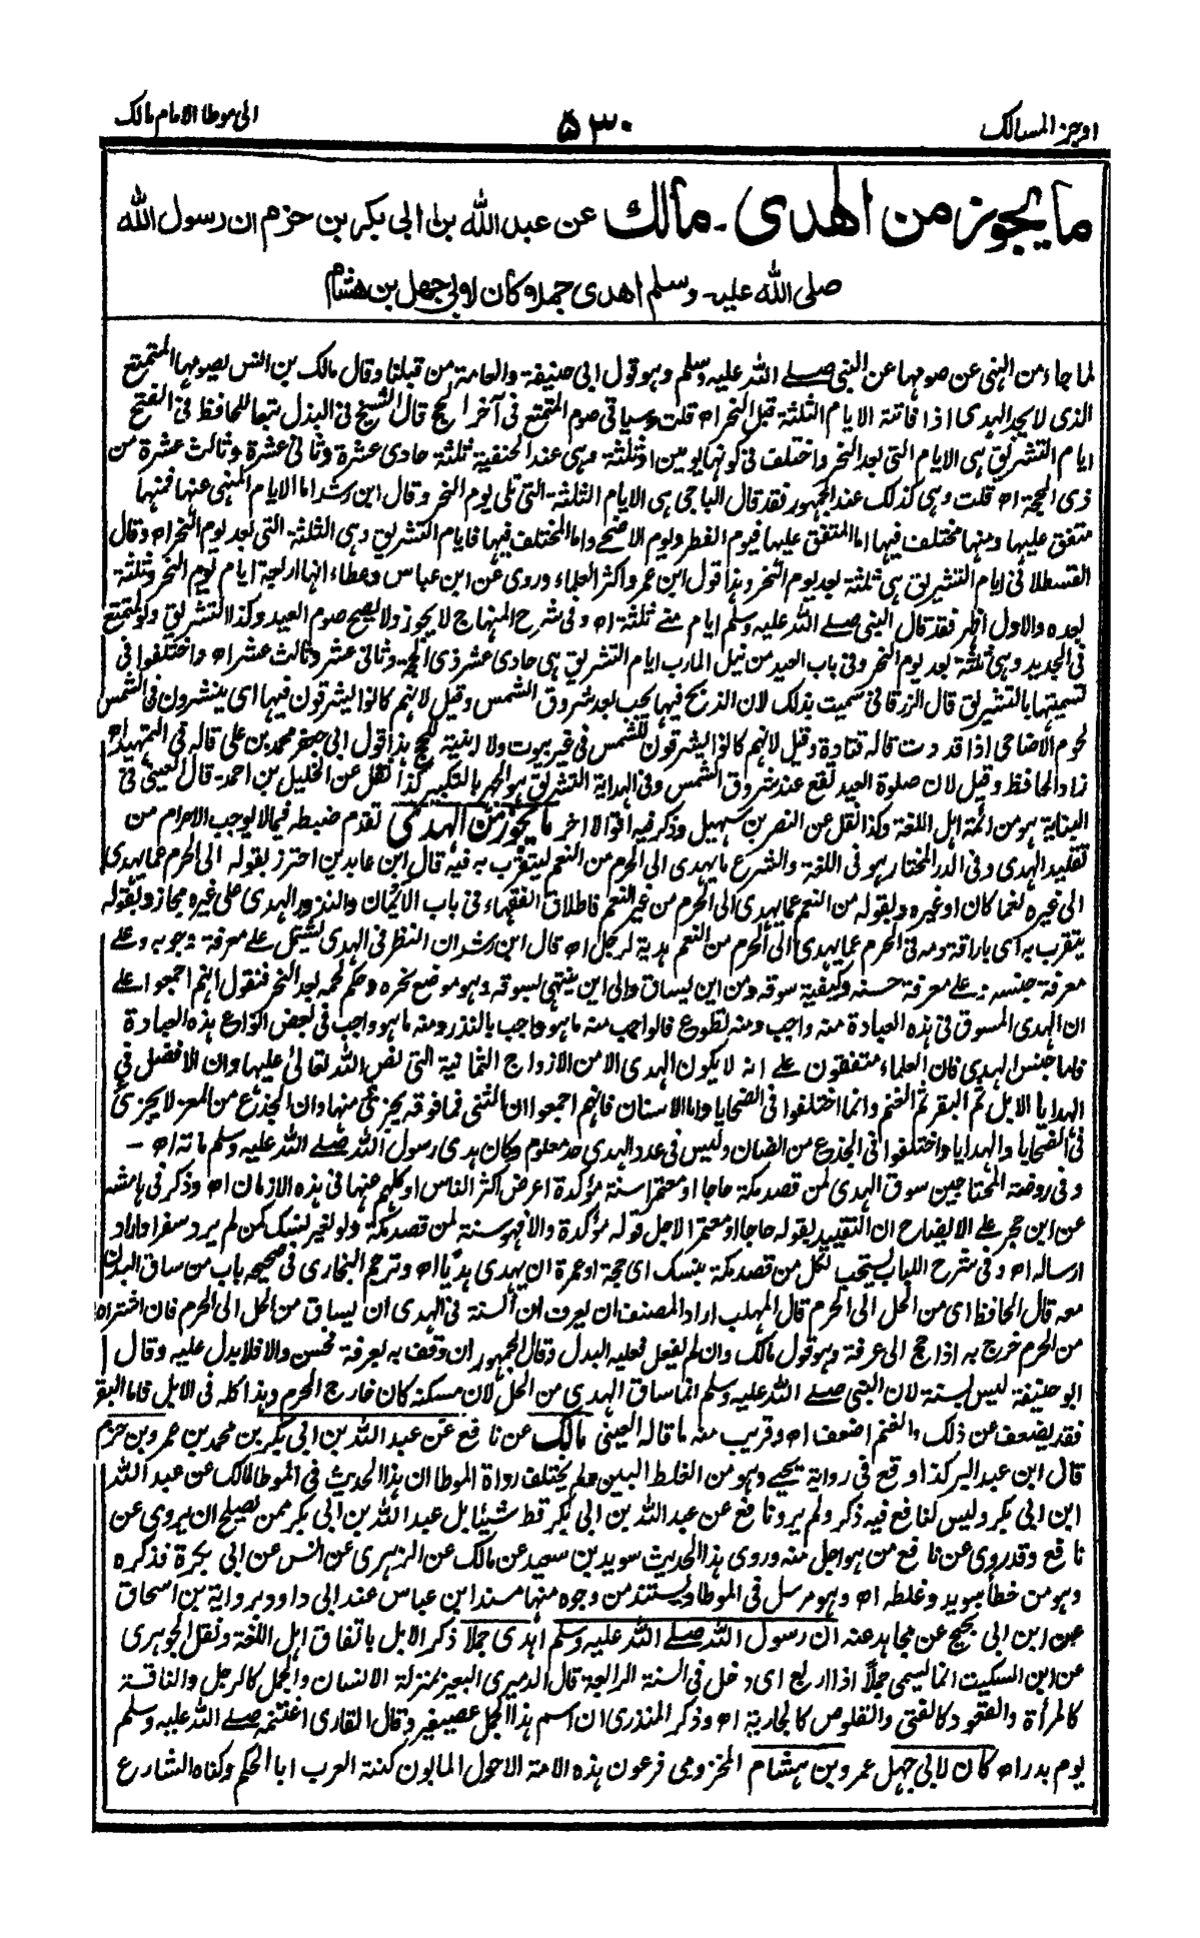 اوجز المسالك
٥٣٠
الى موطا الامام مالك
ما يجوز من الهدى ـ مالك عن عبد الله بن ابى بكر بن حزم ان رسول الله
صلى الله عليه وسلم اهدى جملا وكان لابى جهل بن هشام
لما جاء من النهى عن صومها عن النبى صلے الله عليه وسلم وهو قول ابى حنيفة والعامة من قبلنا وقال مالك بن انس يصومها المتمتع
الذى لا يجد الهدى اذا فاتته الايام الثلثة قبل النحر اھ قلت وسياتى صوم المتمتع فى آخر الحج قال الشيخ فى البذل تبعا للحافظ فى الفتح
ايام التشريق هى الايام التى بعد النحر واختلف فى كونها يومين او ثلثة وهى عند الحنفية ثلثة حادى عشرة وثانى عشرة وثالث عشرة من
ذى الحجة اھ قلت وهى كذلك عند الجمهور نقد قال الباجى هى الايام الثلثة التى تلى يوم النحر وقال ابن رشد اما الايام المنهى عنها فمنها
متفق عليها ومنها مختلف فيها اما المتفق عليها فيوم الفطر ويوم الاضحے واما المختلف فيها فايام التشريق وهى الثلثة التى بعد يوم النحر اھ وقال
القسطلانى ايام التشريق هى ثلثة بعد يوم النحر وهذا قول ابن عمر واكثر العلماء وروى عن ابن عباس وعطاء انها اربعة ايام يوم النحر وثلثة
بعده والاول اظهر فقد قال النبى صلے الله عليه وسلم ايام منے ثلثة اھ وفى شرح المنهاج لا يجوز ولا يصح صوم العيد وكذا التشريق ولو لمتمتع
فى الجديد وهى ثلثة بعد يوم النحر وفى باب العيد من نيل المارب ايام التشريق هى حادى عشر ذى الحجة وثانى عشر وثالث عشر اھ واختلفوا فى
تسميتها بالتشريق قال الزرقانى سميت بذلك لان الذبح فيها يجب بعد شروق الشمس وقيل لانهم كانوا يشرقون فيها اى ينشرون فى الشمس
لحوم الاضاحى اذا قددت قاله قتادة وقيل لانهم كانوا يشرقون للشمس فى غير بيوت ولا ابنية للحج هذا قول ابى جعفر محمد بن على قاله فى التمهيد اھ
زاد الحافظ وقيل لان صلوة العيد تقع عند شروق الشمس وفى الهداية التشريق هو الجهر بالتكبير كذا نقل عن الخليل بن احمد ـ قال العينى فى
البناية هو من ائمة اهل اللغة وكذا نقل عن النضر بن شهيل وذكر فيه اقوالا اخر ما يجوز من الهدى تقدم ضبطه فيما لا يوجب الاحرام من
تقليد الهدى وفى الدر المختار هو فى اللغة والشرع ما يهدى الى الحرم من النعم ليتقرب به فيه قال ابن عابدين احترز بقوله الى الحرم عما يهدى
الى غيره نعما كان او غيره وبقوله من النعم عما يهدى الى الحرم من غير النعم فاطلاق الفقهاء فى باب الأيمان والنذور الهدى على غيره مجاز وبقوله
يتقرب به اى باراقة دمه فى الحرم عما يهدى الى الحرم من النعم هدية لرجل اھ قال ابن رشد ان النظر فى الهدى يشتمل علے معرفة وجوبه وعلے
معرفة جنسه وعلے معرفة حسنه وكيفية سوقه ومن اين يساق والى اين ينتهى بسوقه وهو موضع نحره وحكم لحمه بعد النحر فنقول انهم اجمعوا علے
ان الهدى المسوق فى هذه العبادة منه واجب ومنه تطوع فالواجب منه ما هو واجب بالنذر ومنه ما هو واجب فى بعض انواع هذه العبادة
فاما جنس الهدى فان العلماء متفقون علے انه لا يكون الهدى الا من الازواج الثمانية التى نص الله تعالىٰ عليها وان الافضل فى
الهدايا الابل ثم البقر ثم الغنم وانما اختلفوا فى الضحايا واما الاسنان فانهم اجمعوا ان الثنى فما فوقه يجزئى منها وان الجذع من المعز لا يجزى
فى الضحايا والهدايا واختلفوا فى الجذع من الضان وليس فى عدد الهدى حد معلوم وكان هدى رسول الله صلے الله عليه وسلم مائة اھ ـ
وفى روضة المحتاجين سوق الهدى لمن قصد مكة حاجا او معتمرا سنة مؤكدة اعرض اكثر الناس او كلهم عنها فى هذه الازمان اھ وذكر فى هامشه
عن ابن حجر علے الايضاح ان التقييد بقوله حاجا او معتمرا لاجل قوله مؤكدة والا فهو سنة لمن قصد مكة ولو لغير نسك كمن لم يرد سفرا واراد
ارساله اھ وفى شرح اللباب يستحب لكل من قصد مكة بنسك اى حجة او عمرة ان يهدى هديًا اھ وترجم البخارى فى صحيحه باب من ساق البدن
معه قال الحافظ اى من الحل الى الحرم قال المهلب اراد المصنف ان يعرف ان السنة فى الهدى ان يساق من الحل الى الحرم فان اشتراه
من الحرم خرج به اذا حج الى عرفة وهو قول مالك وان لم يفعل فعليه البدل وقال الجمهور ان وقف به بعرفة فحسن والا فلا بدل عليه وقال
ابو حنيفة ليس بسنة لان النبى صلے الله عليه وسلم انما ساق الهدى من الحل لان مسكنه كان خارج الحرم وهذا كله فى الابل فاما البقر
فقد يضعف عن ذلك والغنم اضعف اھ وقريب منه ما قاله العينى مالك عن نافع عن عبد الله بن ابى بكر بن محمد بن عمرو بن حزم
قال ابن عبد البر كذا وقع فى رواية يحيے وهو من الغلط البين ولم يختلف رواة الموطا ان هذا الحديث فى الموطا لمالك عن عبد الله
ابن ابى بكر وليس لنافع فيه ذكر ولم يرو نافع عن عبد الله بن ابى بكر قط شيئا بل عبد الله بن ابى بكر ممن يصلح ان يروى عن
نافع وقد روى عن نافع من هو اجل منه وروى هذا الحديث سويد بن سعيد عن مالك عن الزهرى عن انس عن ابى بكرة فذكره
وهو من خطأ سويد وغلطه اھ وهو مرسل فى الموطا ويستند من وجوه منها مسند ابن عباس عند ابى داود برواية بن اسحاق
عن ابن ابى نجيح عن مجاهد عنه ان رسول الله صلے الله عليه وسلم اهدى جملا ذكر الابل باتفاق اهل اللغة ونقل الجوهرى
عن ابن السكيت انما يسمى جملاً اذا اربع اى دخل فى السنة الرابعة قال الدميرى البعير بمنزلة الانسان والجمل كالرجل والناقة
كالمرأة والقعود كالفتى والقلوص كالجارية اھ وذكر المنذرى ان اسم هذا الجمل عصيفير وقال القارى اغتنمه صلے الله عليه وسلم
يوم بدر اھ كان لابى جهل عمرو بن هشام المخزومى فرعون هذه الامة الاحول المابون كنته العرب ابا الحكم وكناه الشارع